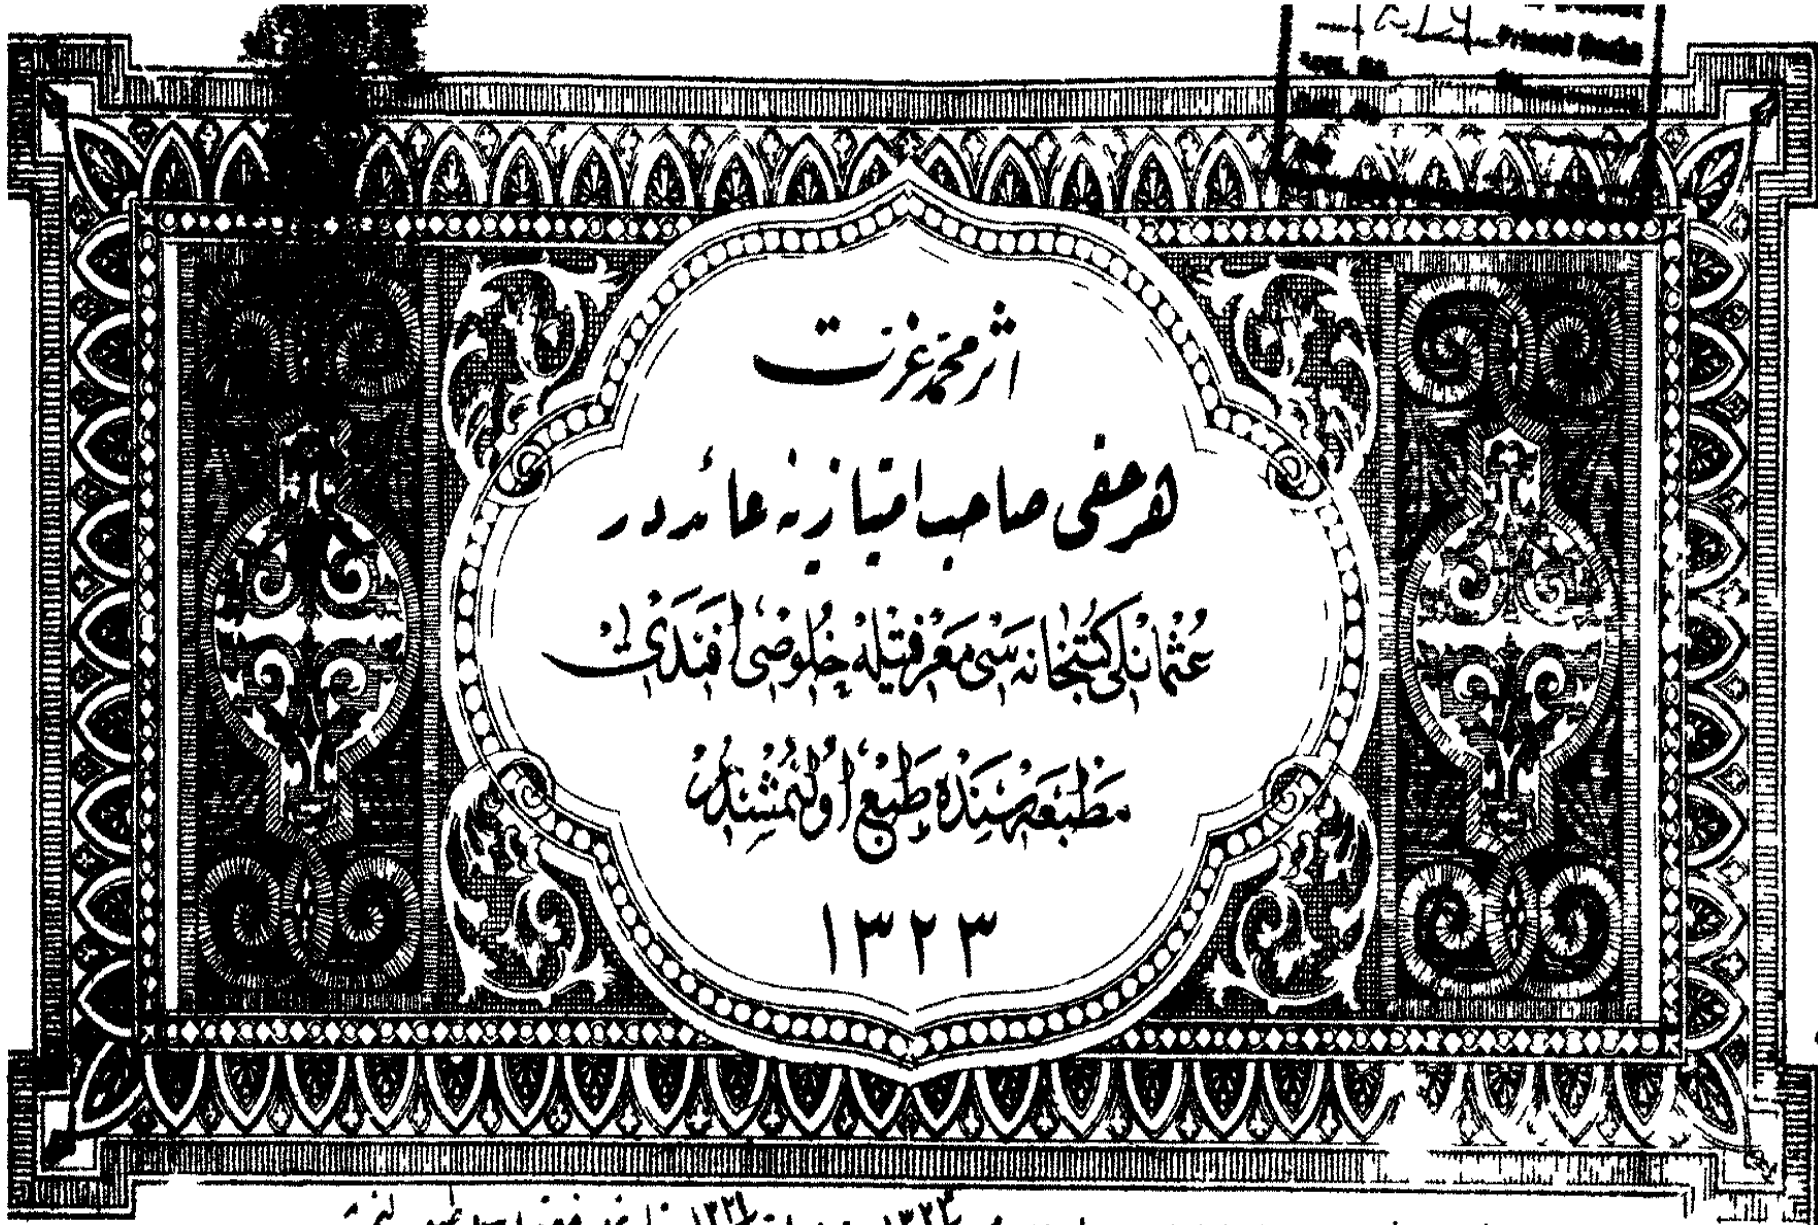 اثر محمد عزت
هر حقى صاحب امتيازينه عائددر
عُثْمَانْلِى كُتُبْخَانَه سِى مَعْرِفَتِيلَه خُلُوصِى اَفَنْدِى نِكْ
مَطْبَعَه سِنْدَه طَبْعْ اُولُنْمُشْدُرْ
١٣٢٣